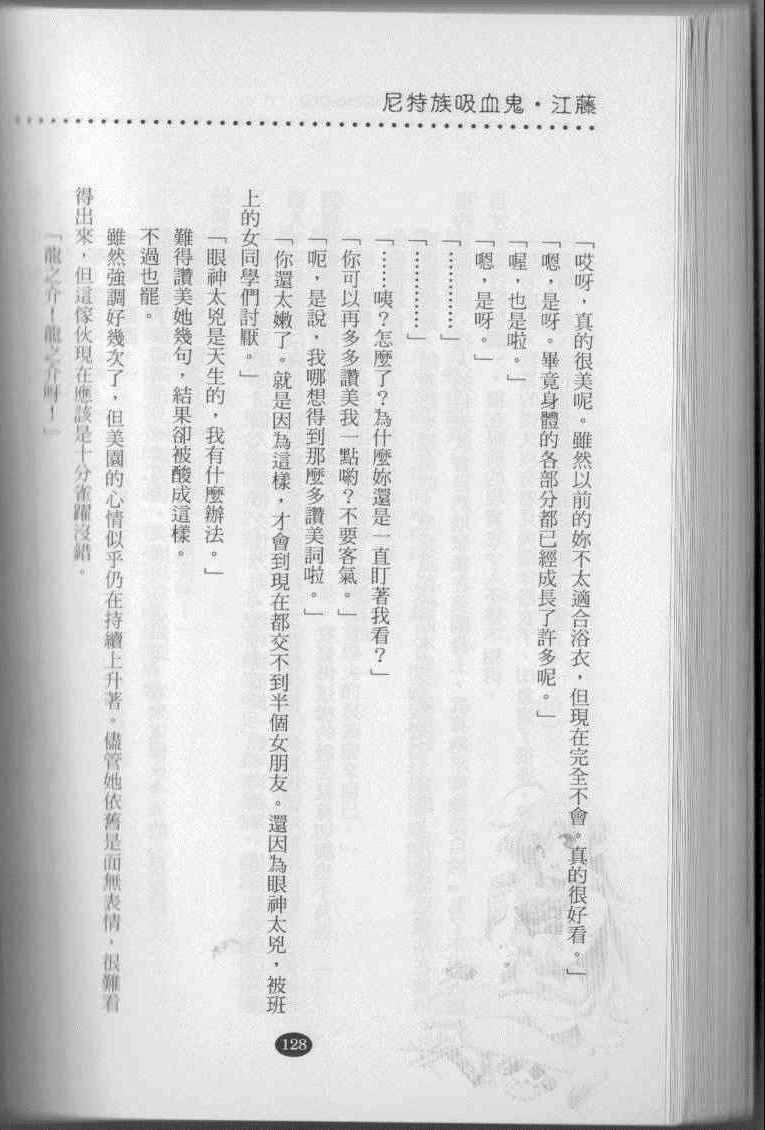 尼特族吸血鬼・江藤
「哎呀，真的很美呢。雖然以前的妳不太適合浴衣，但現在完全不會。真的很好看。」
「嗯，是呀。畢竟身體的各部分都已經成長了許多呢。」
「喔，也是啦。」
「嗯，是呀。」
「…………」
「…………」
「……咦？怎麼了？為什麼妳還是一直盯著我看？」
「你可以再多多讚美我一點喲？不要客氣。」
「呃，是說，我哪想得到那麼多讚美詞啦。」
「你還太嫩了。就是因為這樣，才會到現在都交不到半個女朋友。還因為眼神太兇，被班
上的女同學們討厭。」
「眼神太兇是天生的，我有什麼辦法。」
難得讚美她幾句，結果卻被酸成這樣。
不過也罷。
雖然強調好幾次了，但美園的心情似乎仍在持續上升著。儘管她依舊是面無表情，很難看
得出來，但這傢伙現在應該是十分雀躍沒錯。
「龍之介！龍之介呀！」
128